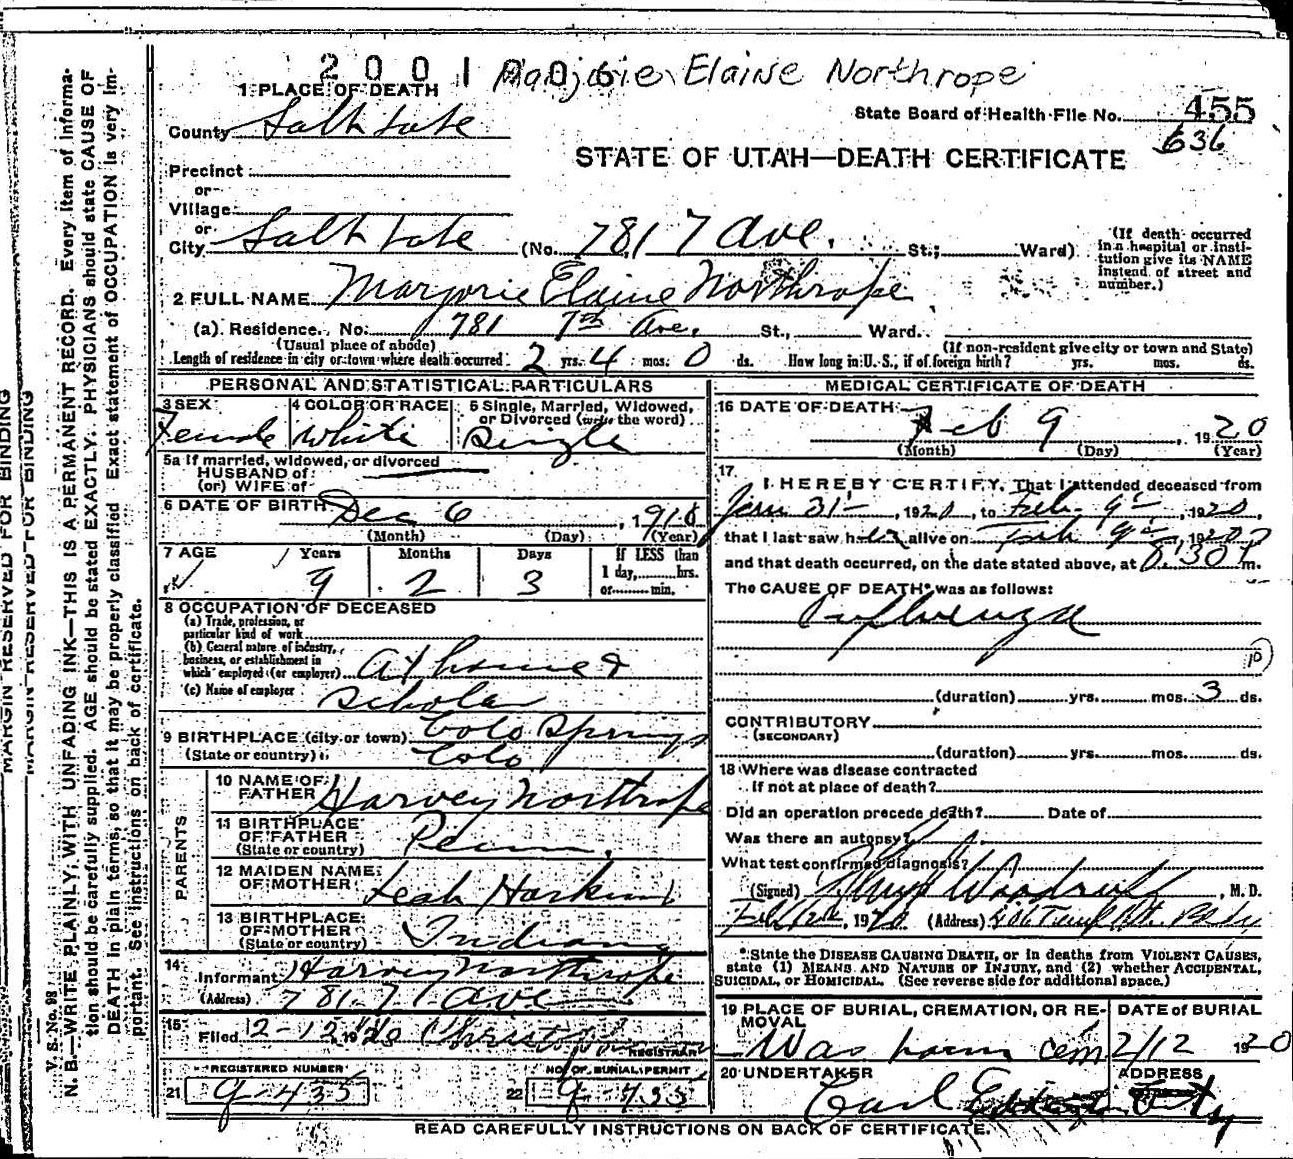 2 0 0 1 0 0 6 Marjorie Elaine Northrope
1 PLACE OF DEATH
State Board of Health File No. 455
County Salt Lake
636
STATE OF UTAH—DEATH CERTIFICATE
Precinct
or
Village
or
City Salt Lake (No. 781 7 Ave. St.; Ward)
(If death occurred in a hospital or institution give its NAME instead of street and number.)
2 FULL NAME Marjorie Elaine Northrope
(a) Residence. No. 781 7th Ave. St., Ward.
(Usual place of abode) (If non-resident give city or town and State)
Length of residence in city or town where death occurred 2 yrs. 4 mos. 0 ds. How long in U. S., if of foreign birth? yrs. mos. ds.
PERSONAL AND STATISTICAL PARTICULARS
3 SEX Female
4 COLOR OR RACE White
5 Single, Married, Widowed, or Divorced (write the word) Single
5a If married, widowed, or divorced
HUSBAND of
(or) WIFE of
6 DATE OF BIRTH Dec 6, 1910
(Month) (Day) (Year)
7 AGE Years Months Days If LESS than
1 day, hrs.
or min.
9 2 3
8 OCCUPATION OF DECEASED
(a) Trade, profession, or
particular kind of work
(b) General nature of industry,
business, or establishment in
which employed (or employer) At home &
(c) Name of employer Scholar
9 BIRTHPLACE (city or town) Colo Springs
(State or country) Colo
PARENTS
10 NAME OF FATHER Harvey Northrope
11 BIRTHPLACE OF FATHER
(State or country) Penn.
12 MAIDEN NAME OF MOTHER Leah Harkins
13 BIRTHPLACE OF MOTHER
(State or country) Indiana
14 Informant Harvey Northrope
(Address) 781-7 Ave
15 Filed 2-12 1920
REGISTRAR
REGISTERED NUMBER
21 9-435
NO. OF BURIAL PERMIT
22
MEDICAL CERTIFICATE OF DEATH
16 DATE OF DEATH Feb 9, 1920
(Month) (Day) (Year)
17
I HEREBY CERTIFY, That I attended deceased from
Jan 31, 1920, to Feb 9, 1920,
that I last saw her alive on Feb 9, 1920
and that death occurred, on the date stated above, at 8:30 P m.
The CAUSE OF DEATH* was as follows:
Influenza
10
(duration) yrs. mos. 3 ds.
CONTRIBUTORY
(SECONDARY)
(duration) yrs. mos. ds.
18 Where was disease contracted
if not at place of death?
Did an operation precede death? Date of
Was there an autopsy?
What test confirmed diagnosis?
(Signed) Woodruff, M. D.
1920 (Address)
*State the DISEASE CAUSING DEATH, or in deaths from VIOLENT CAUSES,
state (1) MEANS AND NATURE OF INJURY, and (2) whether ACCIDENTAL,
SUICIDAL, or HOMICIDAL. (See reverse side for additional space.)
19 PLACE OF BURIAL, CREMATION, OR REMOVAL DATE OF BURIAL
cem 2/12 1920
20 UNDERTAKER ADDRESS
Carl City
READ CAREFULLY INSTRUCTIONS ON BACK OF CERTIFICATE.
MARGIN RESERVED FOR BINDING
MARGIN RESERVED FOR BINDING
V. S. No. 98
N. B.—WRITE PLAINLY, WITH UNFADING INK—THIS IS A PERMANENT RECORD. Every item of informa-
tion should be carefully supplied. AGE should be stated EXACTLY. PHYSICIANS should state CAUSE OF
DEATH in plain terms, so that it may be properly classified. Exact statement of OCCUPATION is very im-
portant. See instructions on back of certificate.